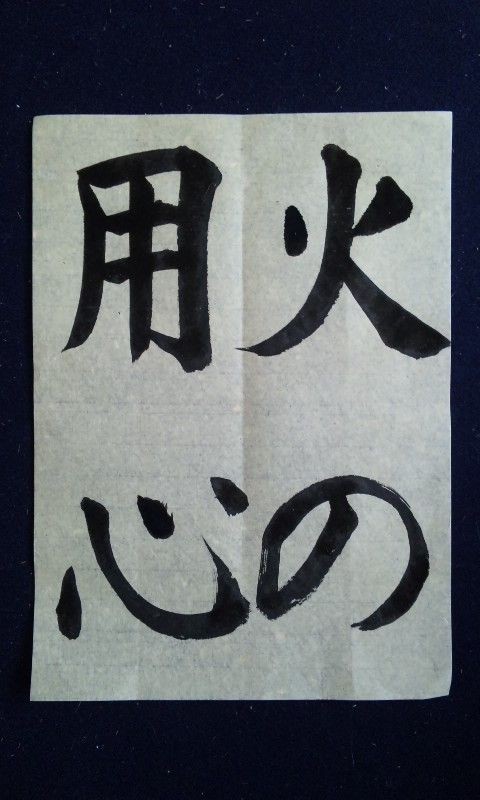 火の
用心